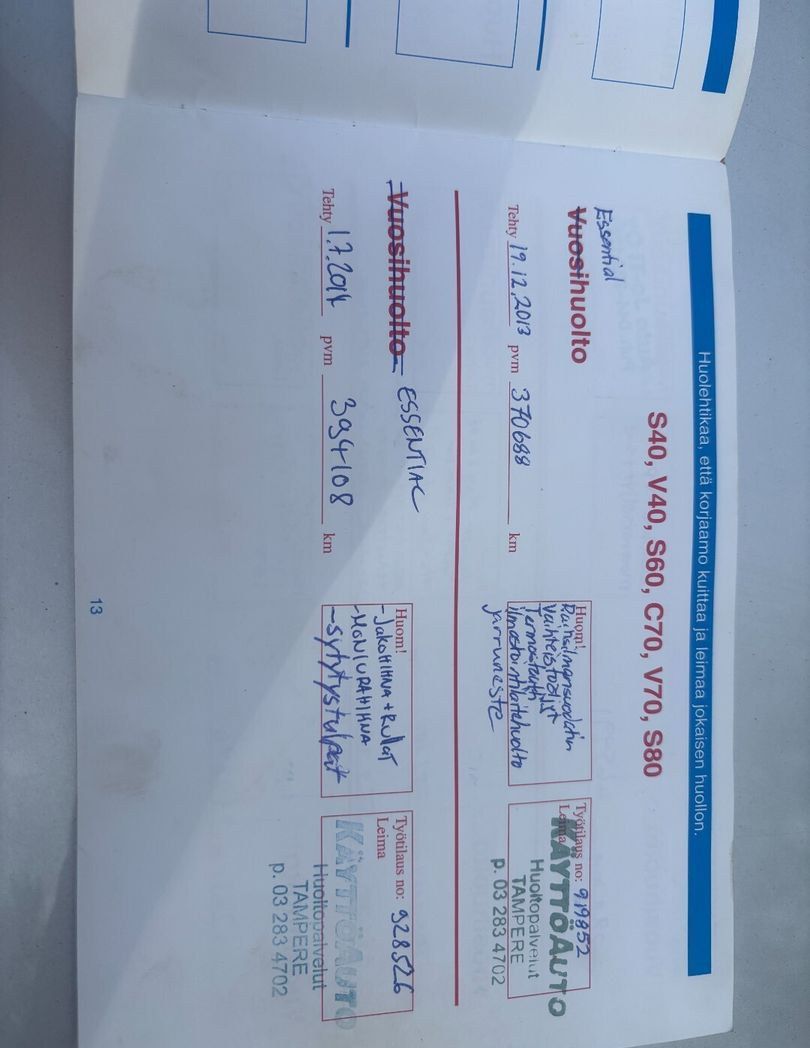 Huolehtikaa, että korjaamo kuittaa ja leimaa jokaisen huollon.
S40, V40, S60, C70, V70, S80
Essential
Vuosihuolto
Tehty 19.12.2013 pvm 370688 km
Huom!
Raitisilmansuodatin
Vaihteistoöljyt
Termostaatti
ilmastointilaitehuolto
jarruneste
Työtilaus no: 919852
Leima
KÄYTTÖAUTO
Huoltopalvelut
TAMPERE
p. 03 283 4702
Vuosihuolto ESSENTIAL
Tehty 1.7.2014 pvm 394108 km
Huom!
-JAKOHIHNA + RULLAT
-MONIURAHIHNA
-sytytystulpat
Työtilaus no: 928526
Leima
KÄYTTÖAUTO
Huoltopalvelut
TAMPERE
p. 03 283 4702
13